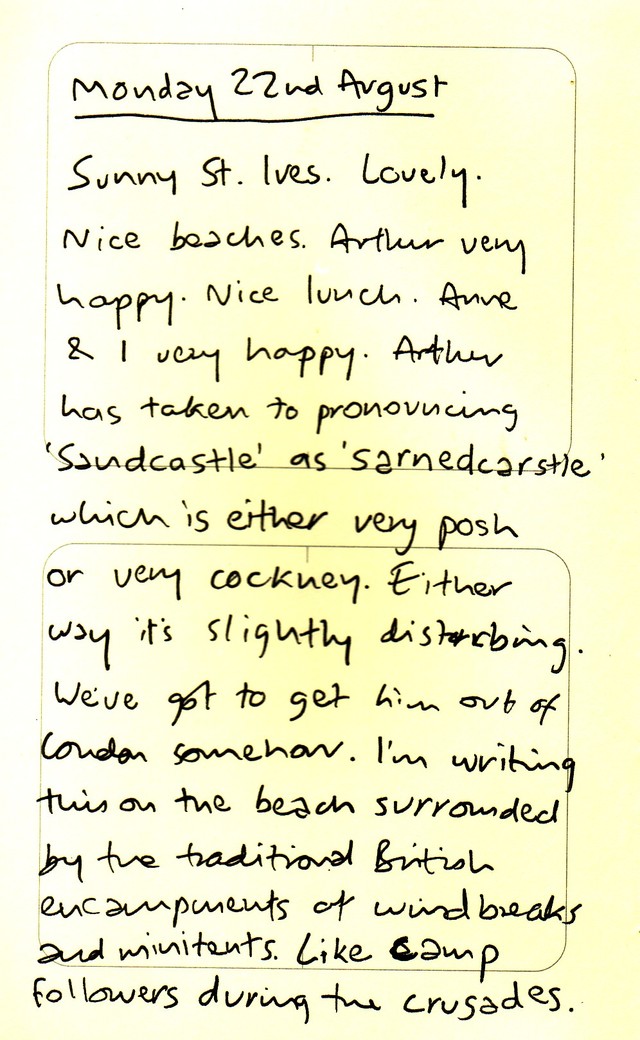 Monday 22nd August
Sunny St. Ives. Lovely.
Nice beaches. Arthur very
happy. Nice lunch. Anne
& I very happy. Arthur
has taken to pronouncing
'Sandcastle' as 'sarnedcarstle'
which is either very posh
or very cockney. Either
way it's slightly disturbing.
We've got to get him out of
London somehow. I'm writing
this on the beach surrounded
by the traditional British
encampments of windbreaks
and minitents. Like camp
followers during the crusades.